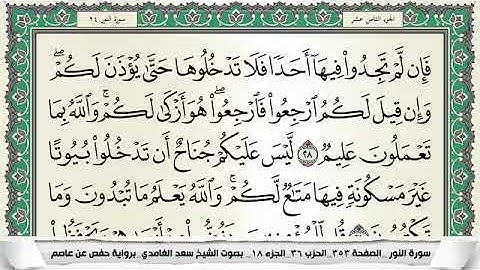 الجزء الثامن عشر
سورة النور ٢٤
فَإِن لَّمْ تَجِدُوا۟ فِيهَآ أَحَدًا فَلَا تَدْخُلُوهَا حَتَّىٰ يُؤْذَنَ لَكُمْ ۖ
وَإِن قِيلَ لَكُمُ ٱرْجِعُوا۟ فَٱرْجِعُوا۟ ۖ هُوَ أَزْكَىٰ لَكُمْ ۚ وَٱللَّهُ بِمَا
تَعْمَلُونَ عَلِيمٌ ٢٨ لَّيْسَ عَلَيْكُمْ جُنَاحٌ أَن تَدْخُلُوا۟ بُيُوتًا
غَيْرَ مَسْكُونَةٍ فِيهَا مَتَٰعٌ لَّكُمْ ۚ وَٱللَّهُ يَعْلَمُ مَا تُبْدُونَ وَمَا
سورة النور _الصفحة ٣٥٣_الحزب ٣٦_ الجزء ١٨_ بصوت الشيخ سعد الغامدي_برواية حفص عن عاصم